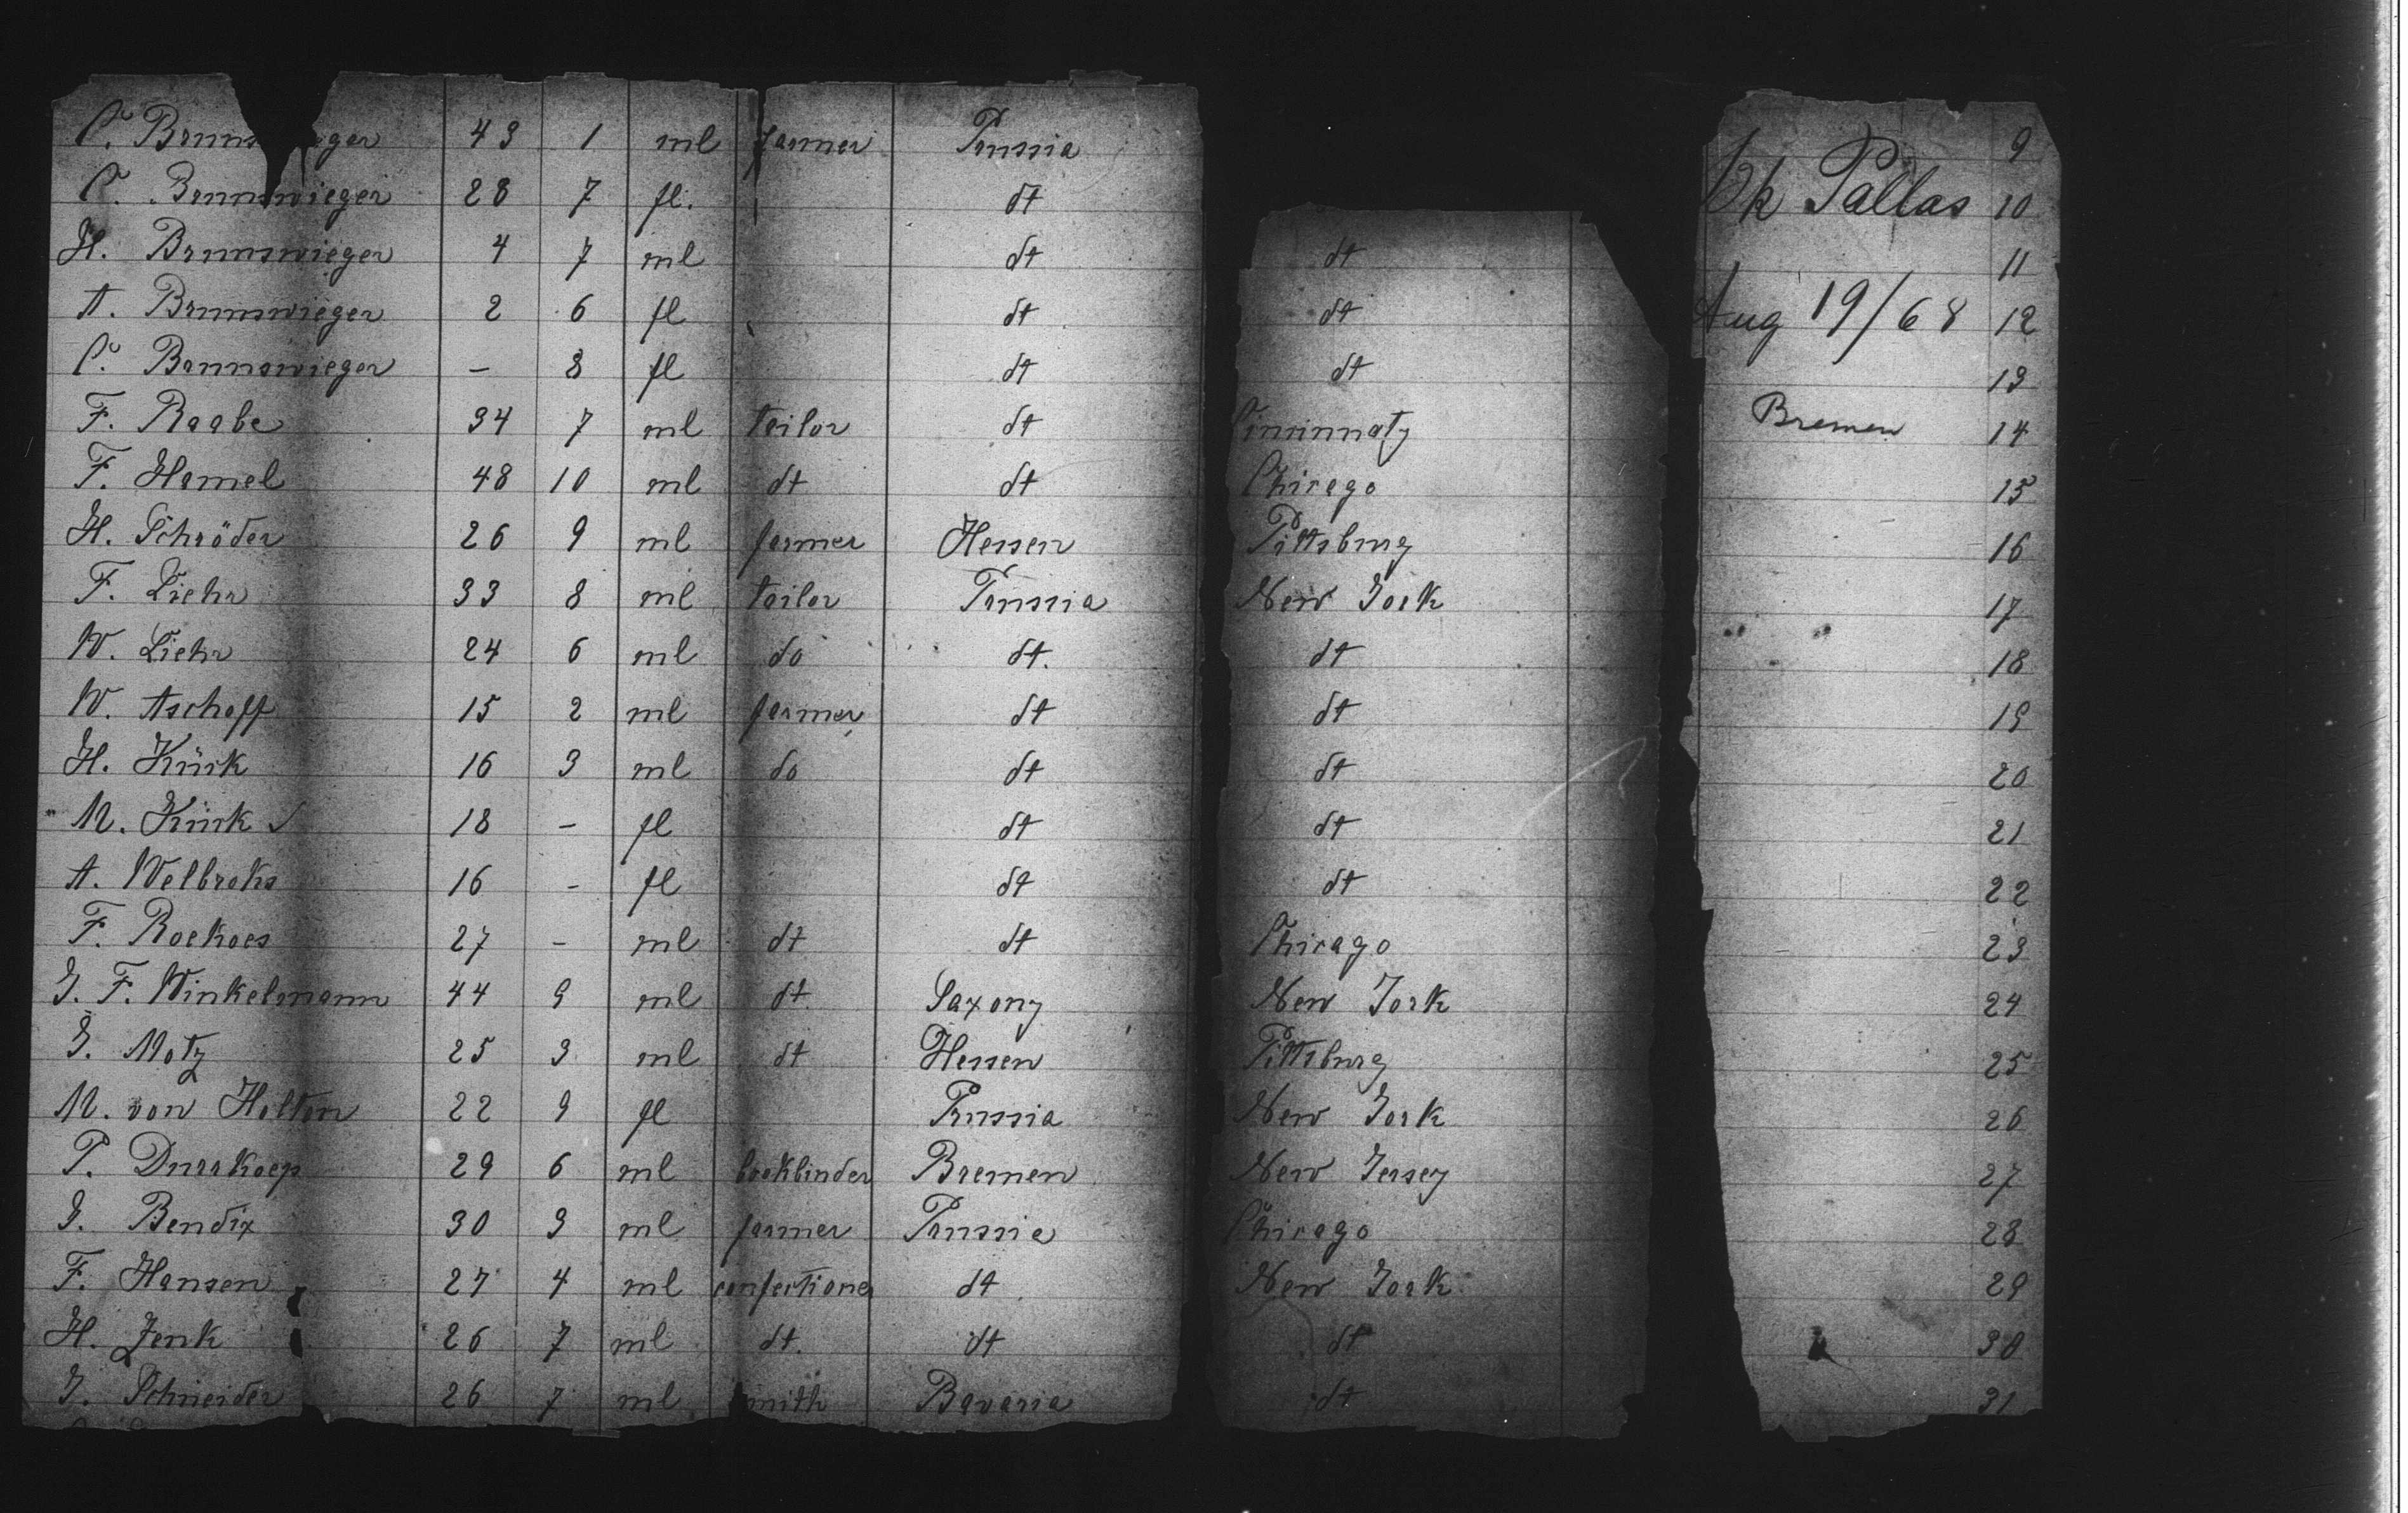 C. Brunswieger 43 1 ml farmer Prussia 9
C. Brunswieger 28 7 fl. dt Bk Pallas 10
H. Brunswieger 4 7 ml dt dt 11
A. Brunswieger 2 6 fl dt dt Aug 19/68 12
C. Brunswieger – 8 fl dt dt 13
F. Raabe 34 7 ml tailor dt Cincinnaty Bremen 14
F. Hamel 48 10 ml dt dt Chicago 15
H. Schröder 26 9 ml farmer Hessen Pittsburg 16
F. Liehr 33 8 ml tailor Prussia New York 17
W. Liehr 24 6 ml do dt. dt 18
W. Aschoff 15 2 ml farmer dt dt 19
H. Kück 16 3 ml do dt dt 20
M. Kück ✓ 18 – fl dt dt 21
A. Welbroks 16 – fl dt dt 22
F. Roekoes 27 – ml dt dt Chicago 23
J. F. Winkelmann 44 9 ml dt Saxony New York 24
J. Motz 25 3 ml dt Hessen Pittsburg 25
M. von Holton 22 9 fl Prussia New York 26
P. Durrkoep 29 6 ml bookbinder Bremen New Jersey 27
J. Bendix 30 3 ml farmer Prussia Chicago 28
F. Hansen 27 4 ml confectioner dt New York 29
H. Zenk 26 7 ml dt. dt dt 30
J. Schneider 26 7 ml smith Bavaria dt 31